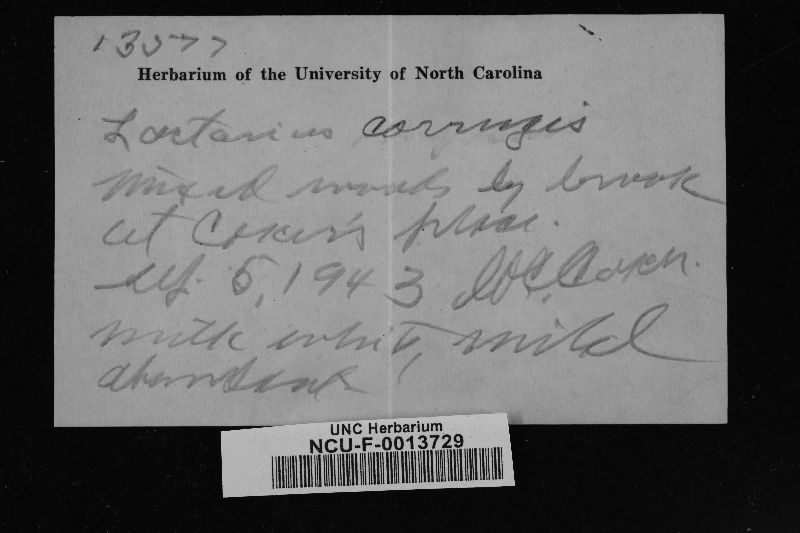 13577
Herbarium of the University of North Carolina
Lactarius corrugis
Mixed woods by brook
at Coker's place.
Sep. 5, 1943 W.C. Coker.
Milk white, mild
abundant
UNC Herbarium
NCU-F-0013729